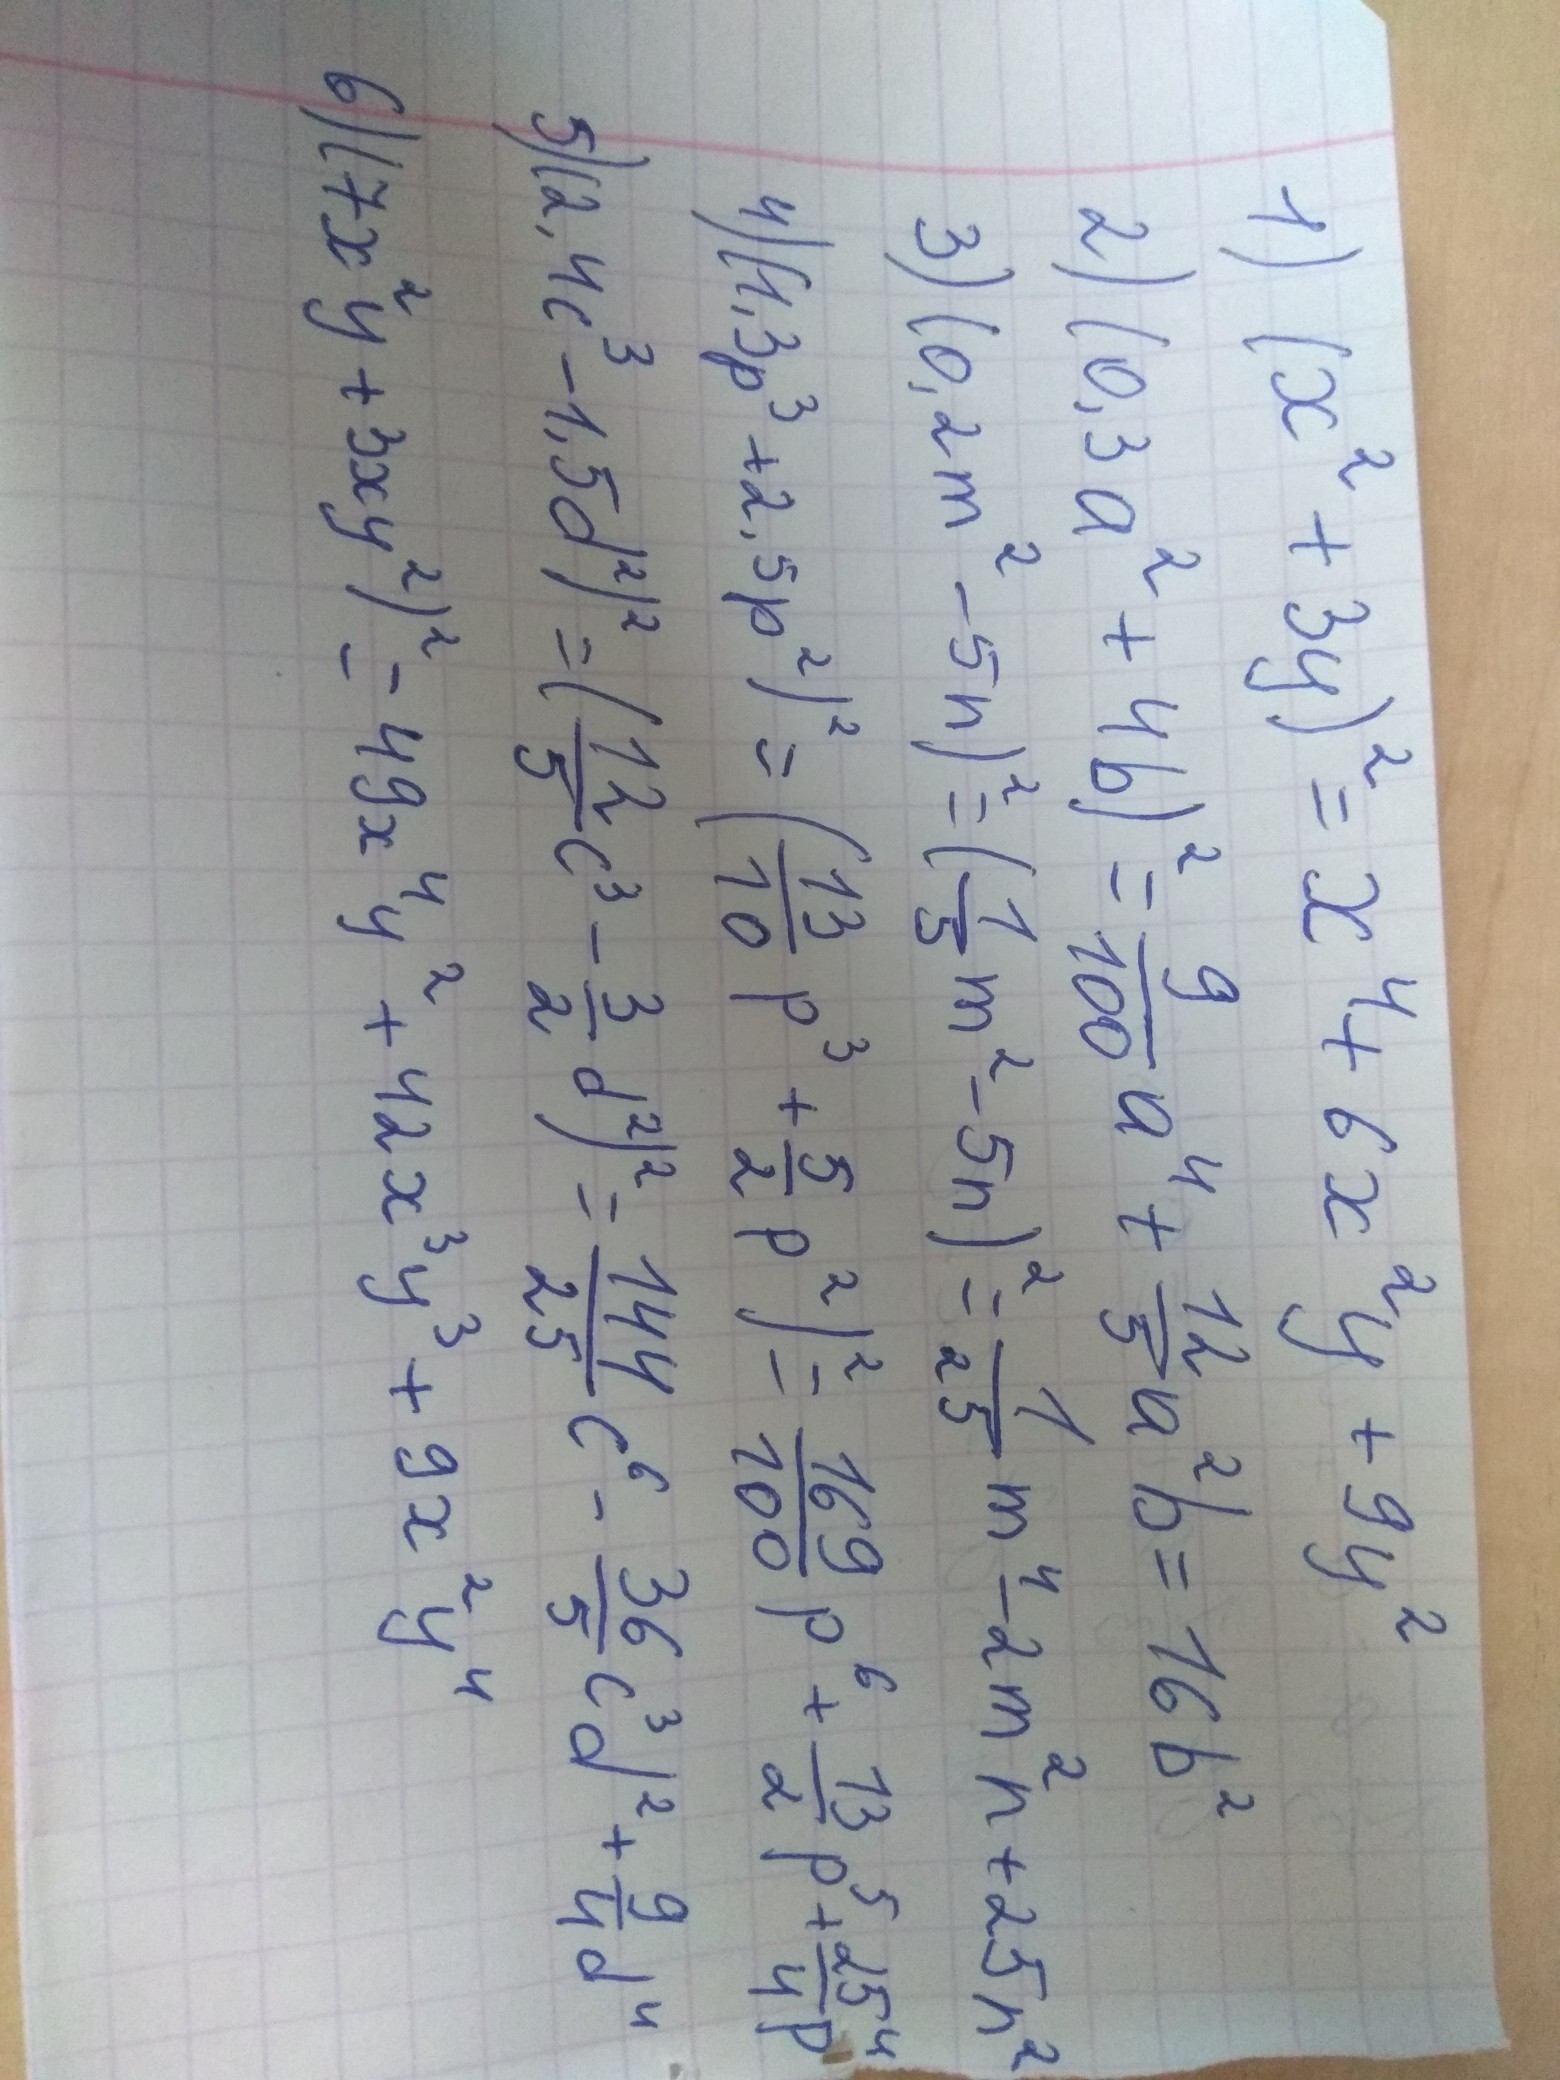 1) (x² + 3y)² = x⁴ + 6x²y + 9y²
2) (0,3a² + 4b)² = 9/100 a⁴ + 12/5 a²b = 16b²
3) (0,2m² - 5n)² = (1/5 m² - 5n)² = 1/25 m⁴ - 2m²n + 25n²
4) (1,3p³ + 2,5p²)² = (13/10 p³ + 5/2 p²)² = 169/100 p⁶ + 13/2 p⁵ + 25/4 p⁴
5) (2,4c³ - 1,5d²)² = (12/5 c³ - 3/2 d²)² = 144/25 c⁶ - 36/5 c³d² + 9/4 d⁴
6) (7x²y + 3xy²)² = 49x⁴y² + 42x³y³ + 9x²y⁴